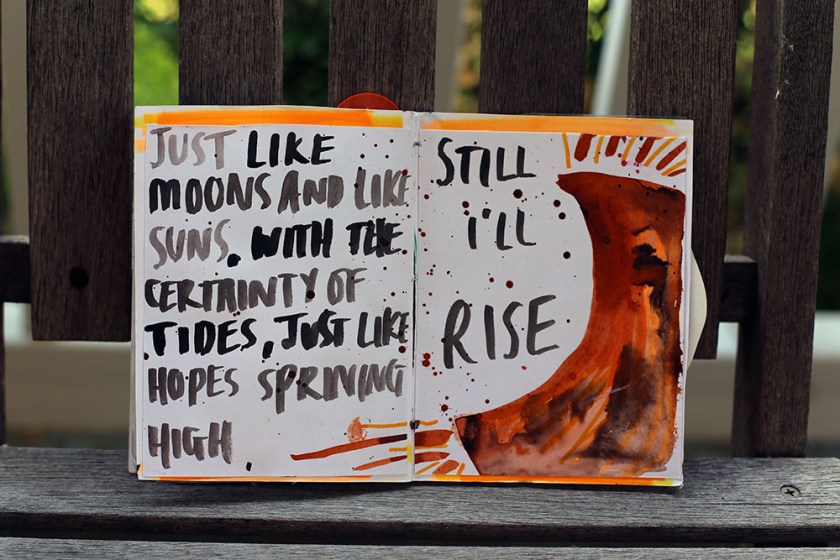 JUST LIKE
MOONS AND LIKE
SUNS, WITH THE
CERTAINTY OF
TIDES, JUST LIKE
HOPES SPRIVING
HIGH,
STILL
I'LL
RISE